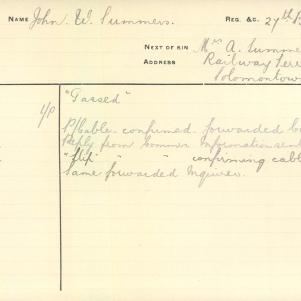 NAME John W. Summers. REG. &C. 27th/
NEXT OF KIN Mrs A. Summe
ADDRESS Railway Terr
Solomontow
"Gassed"
P/Cable confirmed. forwarded
Reply from Common information sent
" " " confirming cabl
Same forwarded Inquirer.